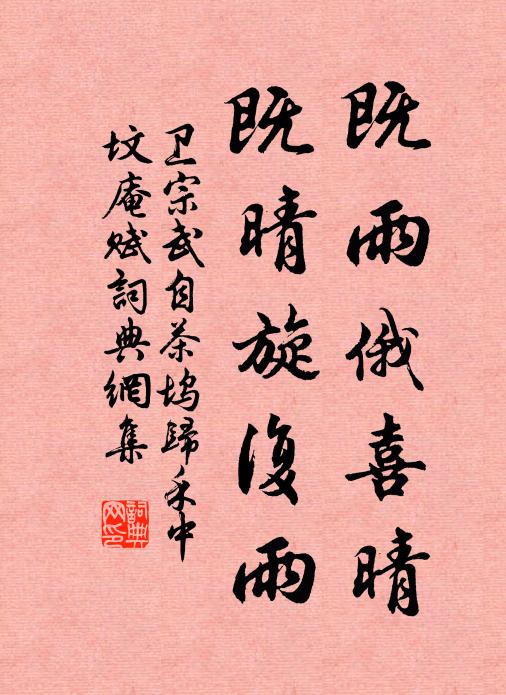 既雨俄喜晴
既晴旋復雨
卫宗武自茶坞歸禾中
坟庵赋詞典網集
詞典网印